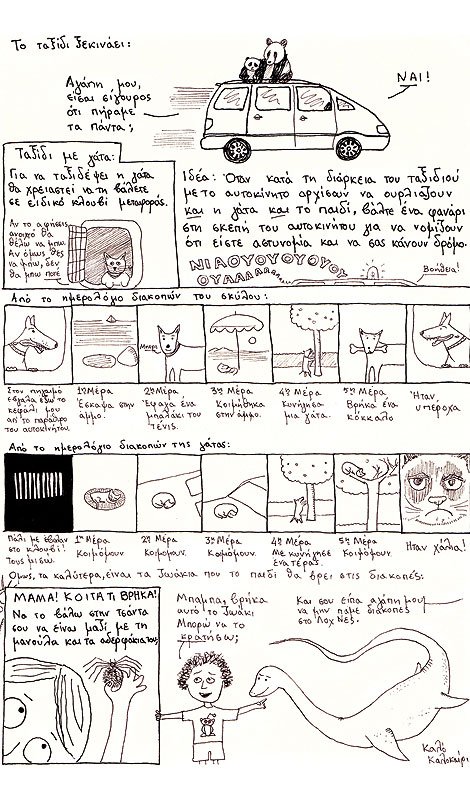 Το ταξίδι ξεκινάει:
Αγάπη μου,
είσαι σίγουρος
ότι πήραμε
τα πάντα;
ΝΑΙ!
Ταξίδι με γάτα:
Για να ταξιδέψει η γάτα
θα χρειαστεί να τη βάλετε
σε ειδικό κλουβί μεταφοράς.
Αν το αφήσεις
ανοιχτό θα
θέλω να μπω.
Αν όμως θες
να μπω, δεν
θα μπω ποτέ
Ιδέα: Όταν κατά τη διάρκεια του ταξιδιού
με το αυτοκίνητο αρχίσουν να ουρλιάζουν
και η γάτα και το παιδί, βάλτε ένα φανάρι
στη σκεπή του αυτοκινήτου για να νομίζουν
ότι είστε αστυνομία και να σας κάνουν δρόμο.
ΝΙΑΟΥΟΥΟΥΟΥΟΥ
ΟΥΑΑΑΑΑ
Βοήθεια!
Από το ημερολόγιο διακοπών του σκύλου:
Μπάρκ
Στον πηγαιμό
έβγαλα έξω το
κεφάλι μου
απ' το παράθυρο
του αυτοκινήτου.
1η Μέρα
Έσκαψα στην
άμμο.
2η Μέρα
Έφαγα ένα
μπαλάκι του
τένις.
3η Μέρα
Κοιμήθηκα
στην άμμο.
4η Μέρα
Κυνήγησα
μια γάτα.
5η Μέρα
Βρήκα ένα
κόκκαλο
Ήταν
υπέροχα
Από το ημερολόγιο διακοπών της γάτας:
Πάλι με έβαλαν
στο κλουβί!
Τους μισώ.
1η Μέρα
Κοιμόμουν.
2η Μέρα
Κοιμόμουν.
3η Μέρα
Κοιμόμουν.
4η Μέρα
Με κυνήγησε
ένα τέρας.
5η Μέρα
Κοιμόμουν.
Ήταν χάλια!
Όμως, τα καλύτερα, είναι τα ζωάκια που το παιδί θα βρει στις διακοπές:
ΜΑΜΑ! ΚΟΙΤΑ ΤΙ ΒΡΗΚΑ!
Να το βάλω στην τσάντα
σου να είναι μαζί με τη
μανούλα και τα αδερφάκια του;
Μπαμπά, βρήκα
αυτό το ζωάκι
Μπορώ να το
κρατήσω;
Και σου είπα αγάπη μου
να μην πάμε διακοπές
στο Λοχ Νες.
Καλό
Καλοκαίρι